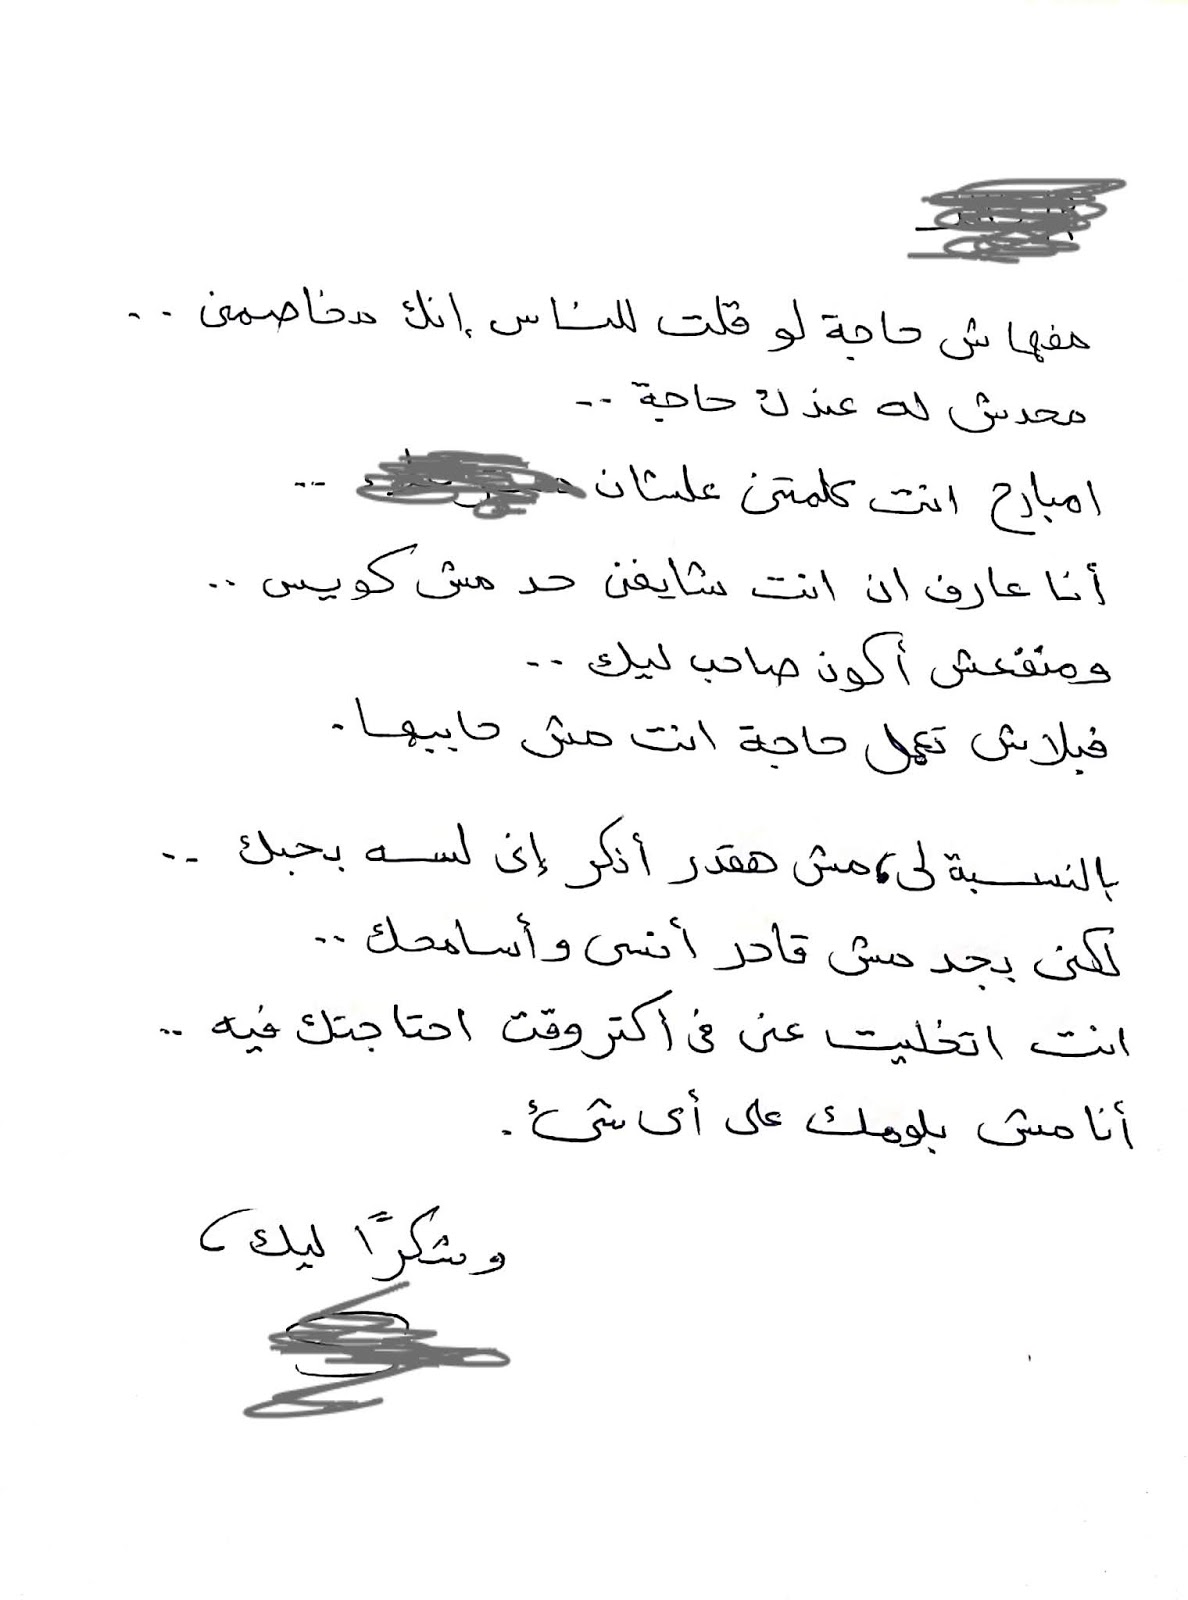 مفهاش حاجة لو قلت للناس إنك مخاصمنى ..
محدش له عندك حاجة ..
امبارح انت كلمتنى علشان ..
أنا عارف ان انت شايفنى حد مش كويس ..
ومنفعش أكون صاحب ليك ..
فبلاش تعمل حاجة انت مش حاببها .
بالنسبة لى، مش هقدر أنكر إنى لسه بحبك ..
لكنى بجد مش قادر أنسى وأسامحك ..
انت اتخليت عنى فى أكتر وقت احتاجتك فيه ..
أنا مش بلومك على أى شئ .
وشكرًا ليك،